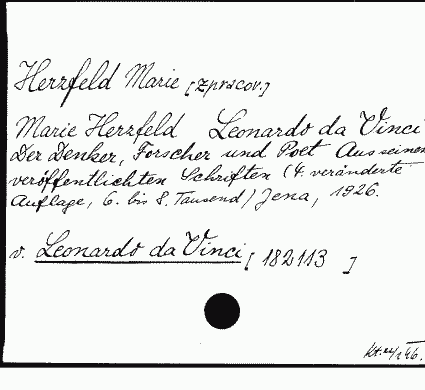 Herzfeld Marie [zpracov.]
Marie Herzfeld Leonardo da Vinci
Der Denker, Forscher und Poet Aus seinen
veröffentlichten Schriften (4. veränderte
Auflage, 6. bis 8. Tausend) Jena, 1926.
v. Leonardo da Vinci [182113 ]